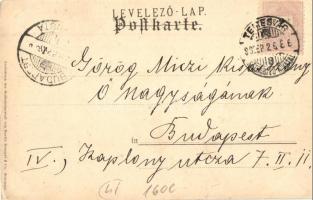 LEVELEZŐ-LAP.
Postkarte.
TEMESVÁR
BUDAPEST
Görög Miczi kisasszony
Ő nagyságának
in Budapest
IV., Kaplony utcza 7. II. 11.
160c